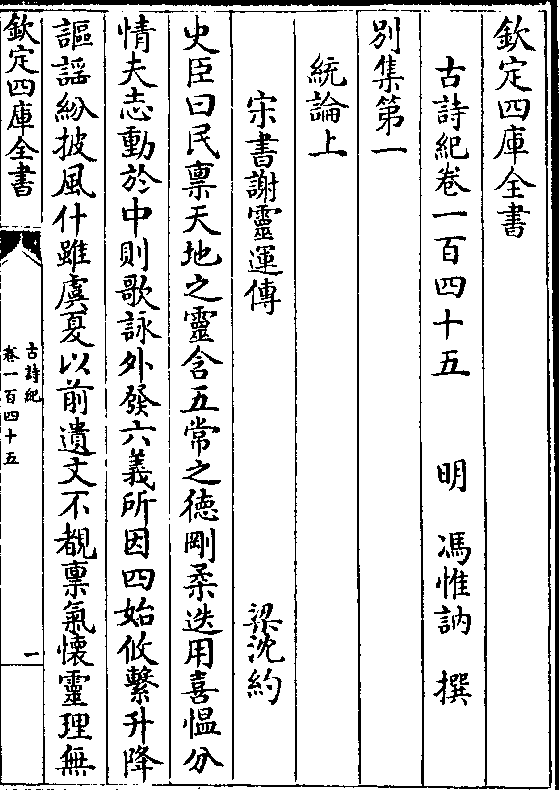 欽定四庫全書
古詩紀卷一百四十五 明 馮惟訥 撰
別集第一
統論上
宋書謝靈運傳 梁沈約
史臣曰民稟天地之靈含五常之德剛柔迭用喜慍分
情夫志動於中則歌詠外發六義所因四始攸繫升降
謳謠紛披風什雖虞夏以前遺文不覩稟氣懷靈理無
欽定四庫全書
古詩紀
卷一百四十五
一